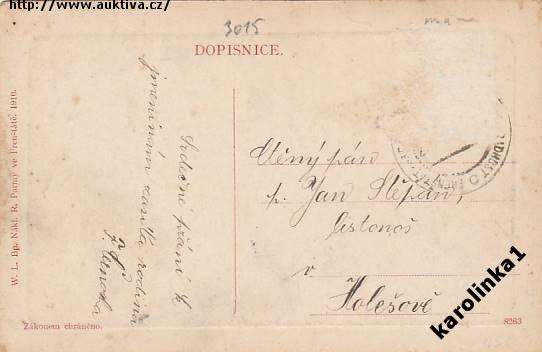 http://www.auktiva.cz/
3015
DOPISNICE.
Srdečné přání k
jmeninám zasílá rodina
Ctěný pán
p. Jan Štěpán,
listonoš
v
Holešově
W. L. Bp. Nákl. R. Parmy ve Frenštátě. 1910.
Zákonem chráněno.
8263
karolinka1